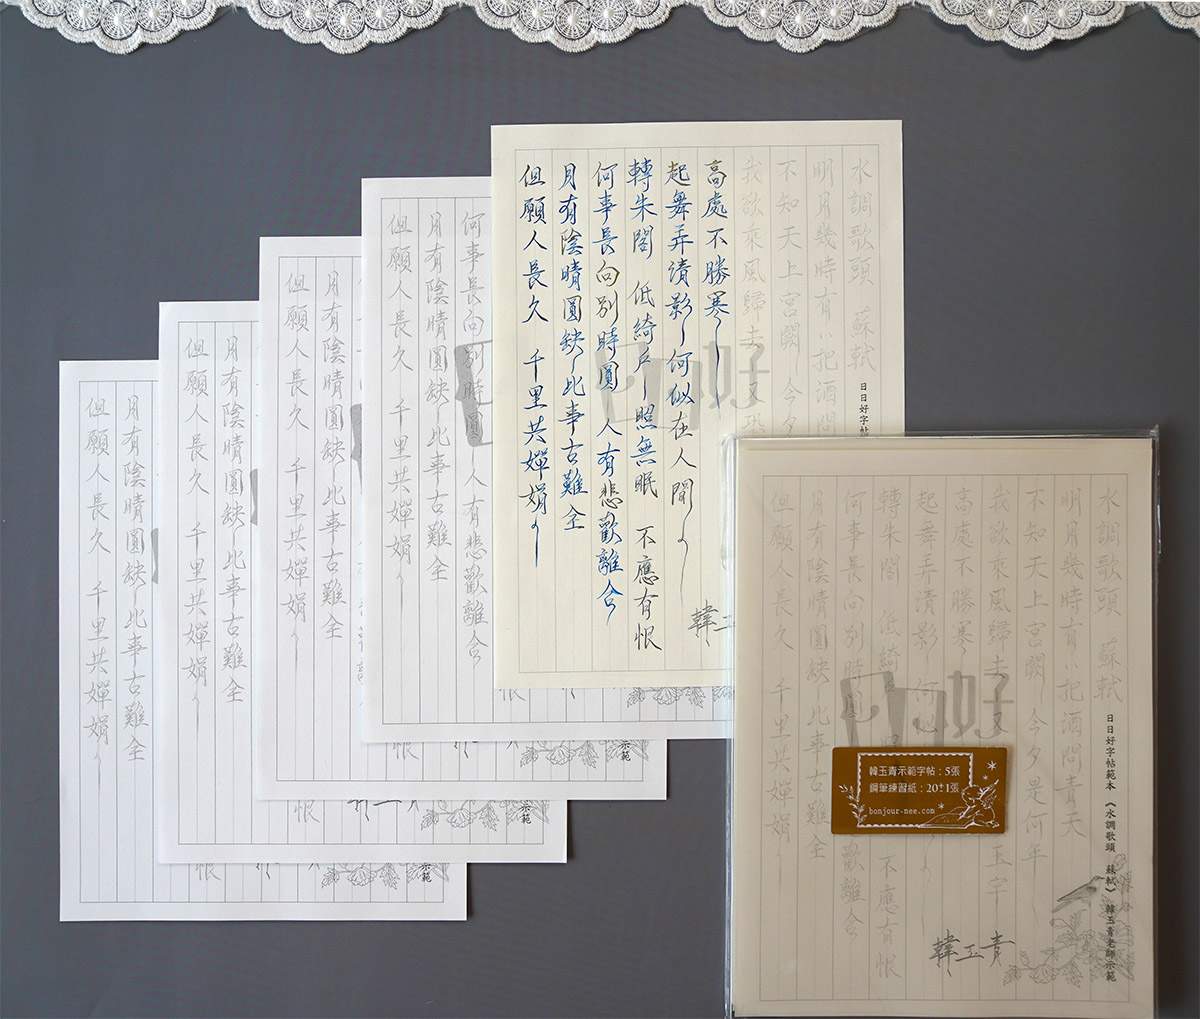 水調歌頭 蘇軾
明月幾時有 把酒問
不知天上宮闕 今夕
我欲乘風歸去 又恐
高處不勝寒
起舞弄清影 何似在人間
轉朱閣 低綺戶 照無眠 不應有恨
何事長向別時圓 人有悲歡離合
月有陰晴圓缺 此事古難全
但願人長久 千里共嬋娟
日日好字帖
韓玉
好
何事長向別時圓 人有悲歡離合
月有陰晴圓缺 此事古難全
但願人長久 千里共嬋娟
恨
月有陰晴圓缺 此事古難全
但願人長久 千里共嬋娟
恨
示範
月有陰晴圓缺 此事古難全
但願人長久 千里共嬋娟
恨
示範
月有陰晴圓缺 此事古難全
但願人長久 千里共嬋娟
恨
示範
水調歌頭 蘇軾
明月幾時有 把酒問青天
不知天上宮闕 今夕是何年
我欲乘風歸去 又 玉宇
高處不勝寒
起舞弄清影 何似
轉朱閣 低綺 不應有恨
何事長向別時 歡離合
月有陰晴圓缺 此事古難全
但願人長久 千里共嬋娟
日日好字帖範本 《水調歌頭 蘇軾》 韓玉青老師示範
韓玉青
日日好
韓玉青示範字帖：5張
鋼筆練習紙：20+1張
bonjour-nee.com